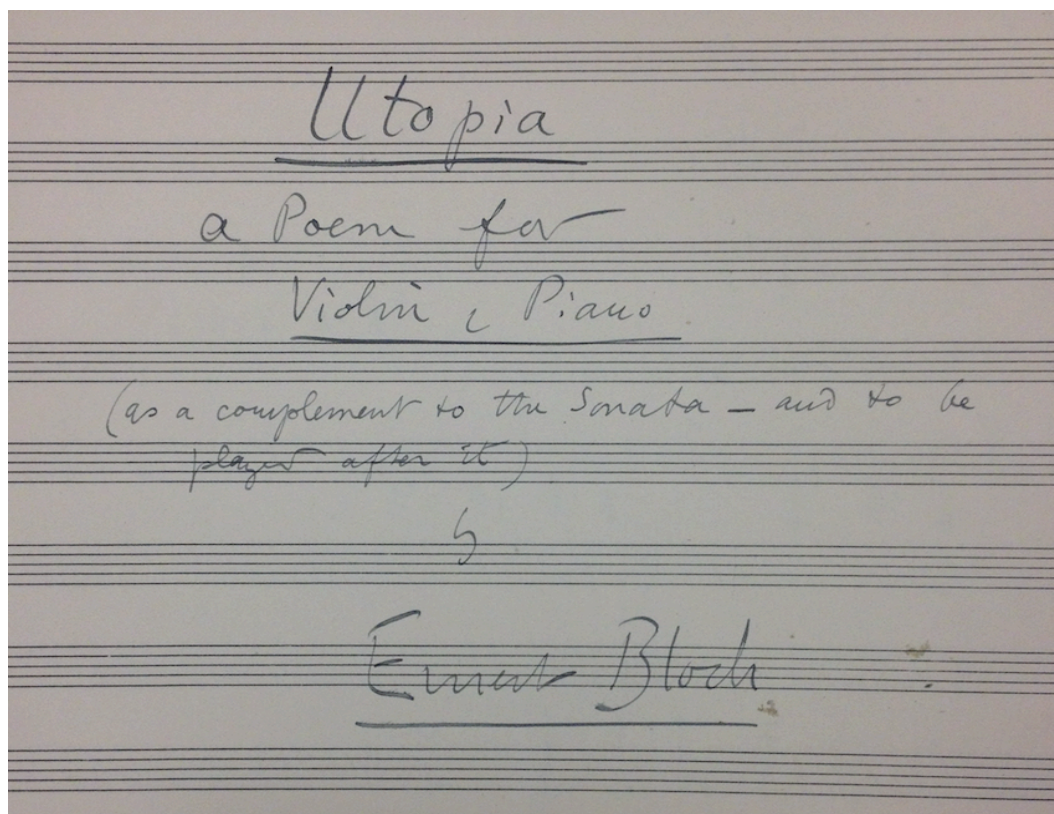 Utopia
a Poem for
Violin & Piano
(as a complement to the Sonata — and to be
played after it)
by
Ernest Bloch